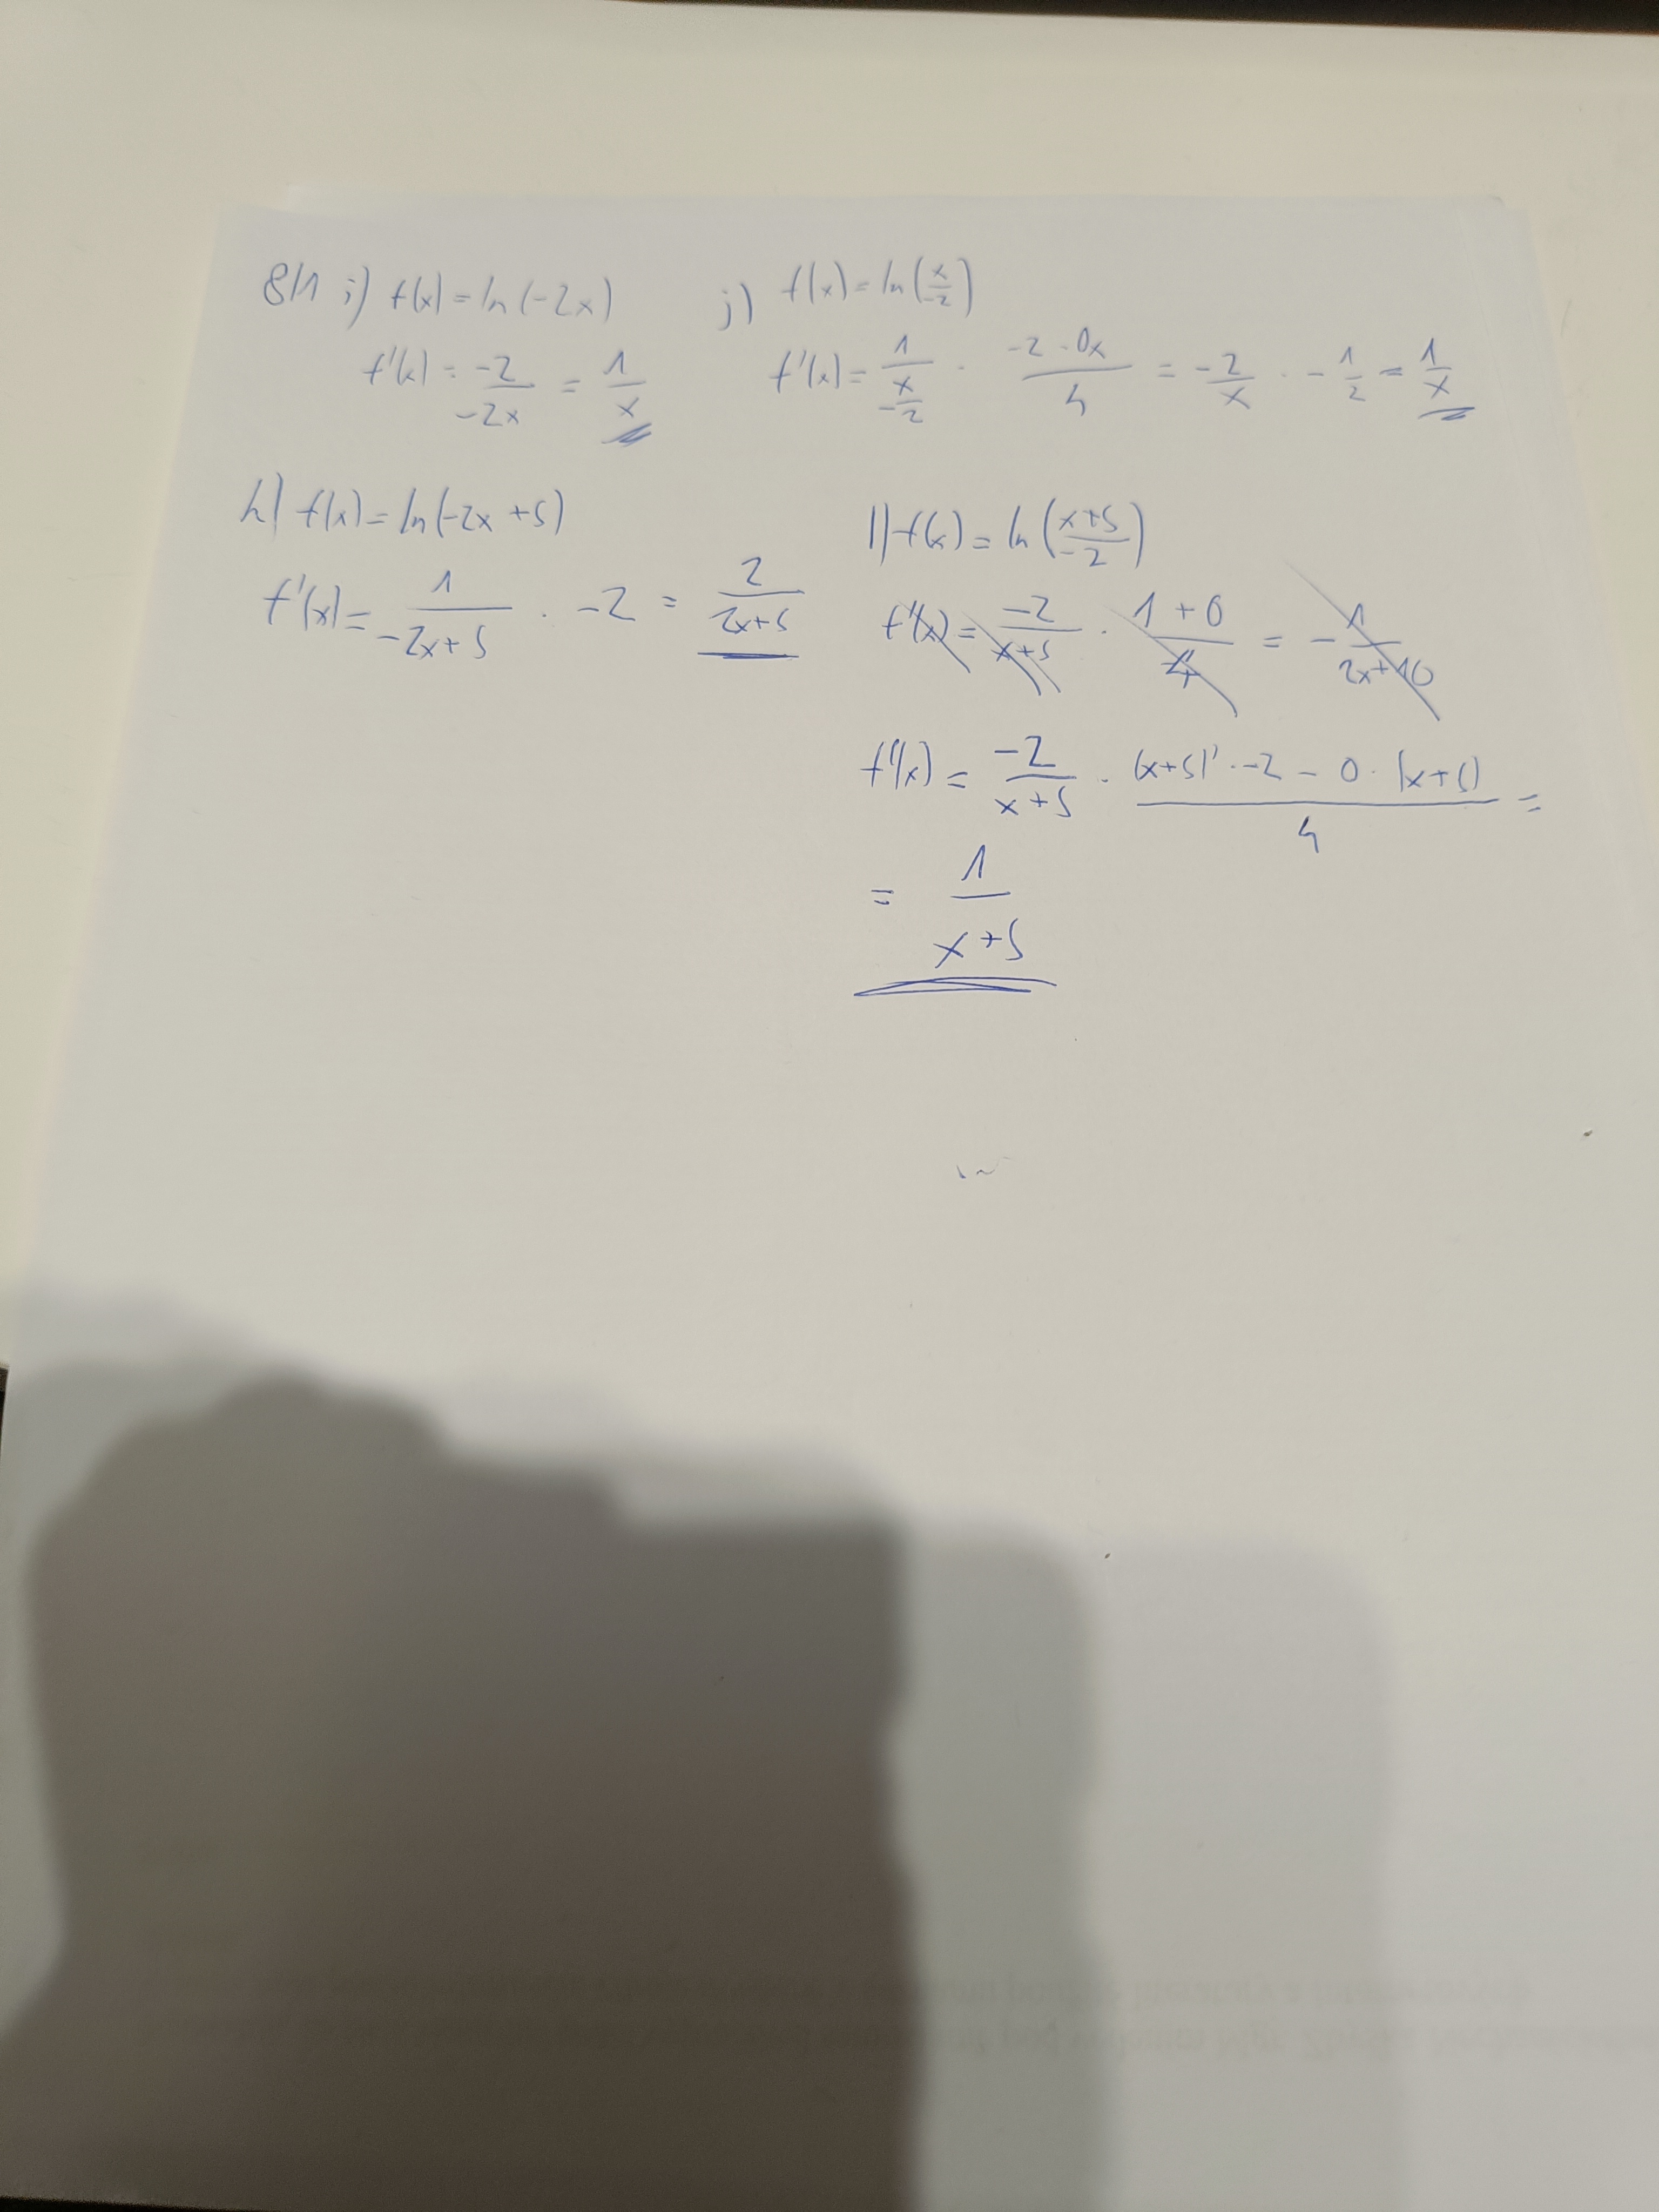 8/1 i) f(x) = ln(-2x)
f'(x) = -2/-2x = 1/x
j) f(x) = ln(x/-2)
f'(x) = 1/(x/-2) · (-2-0x)/4 = -2/x · -1/2 = 1/x
h) f(x) = ln(-2x+5)
f'(x) = 1/(-2x+5) · -2 = 2/(2x+5)
l) f(x) = ln((x+5)/-2)
f'(x) = -2/(x+5) · (1+0)/4 = -1/(2x+10)
f'(x) = -2/(x+5) · ((x+5)'·-2-0·(x+5))/4 =
= 1/(x+5)